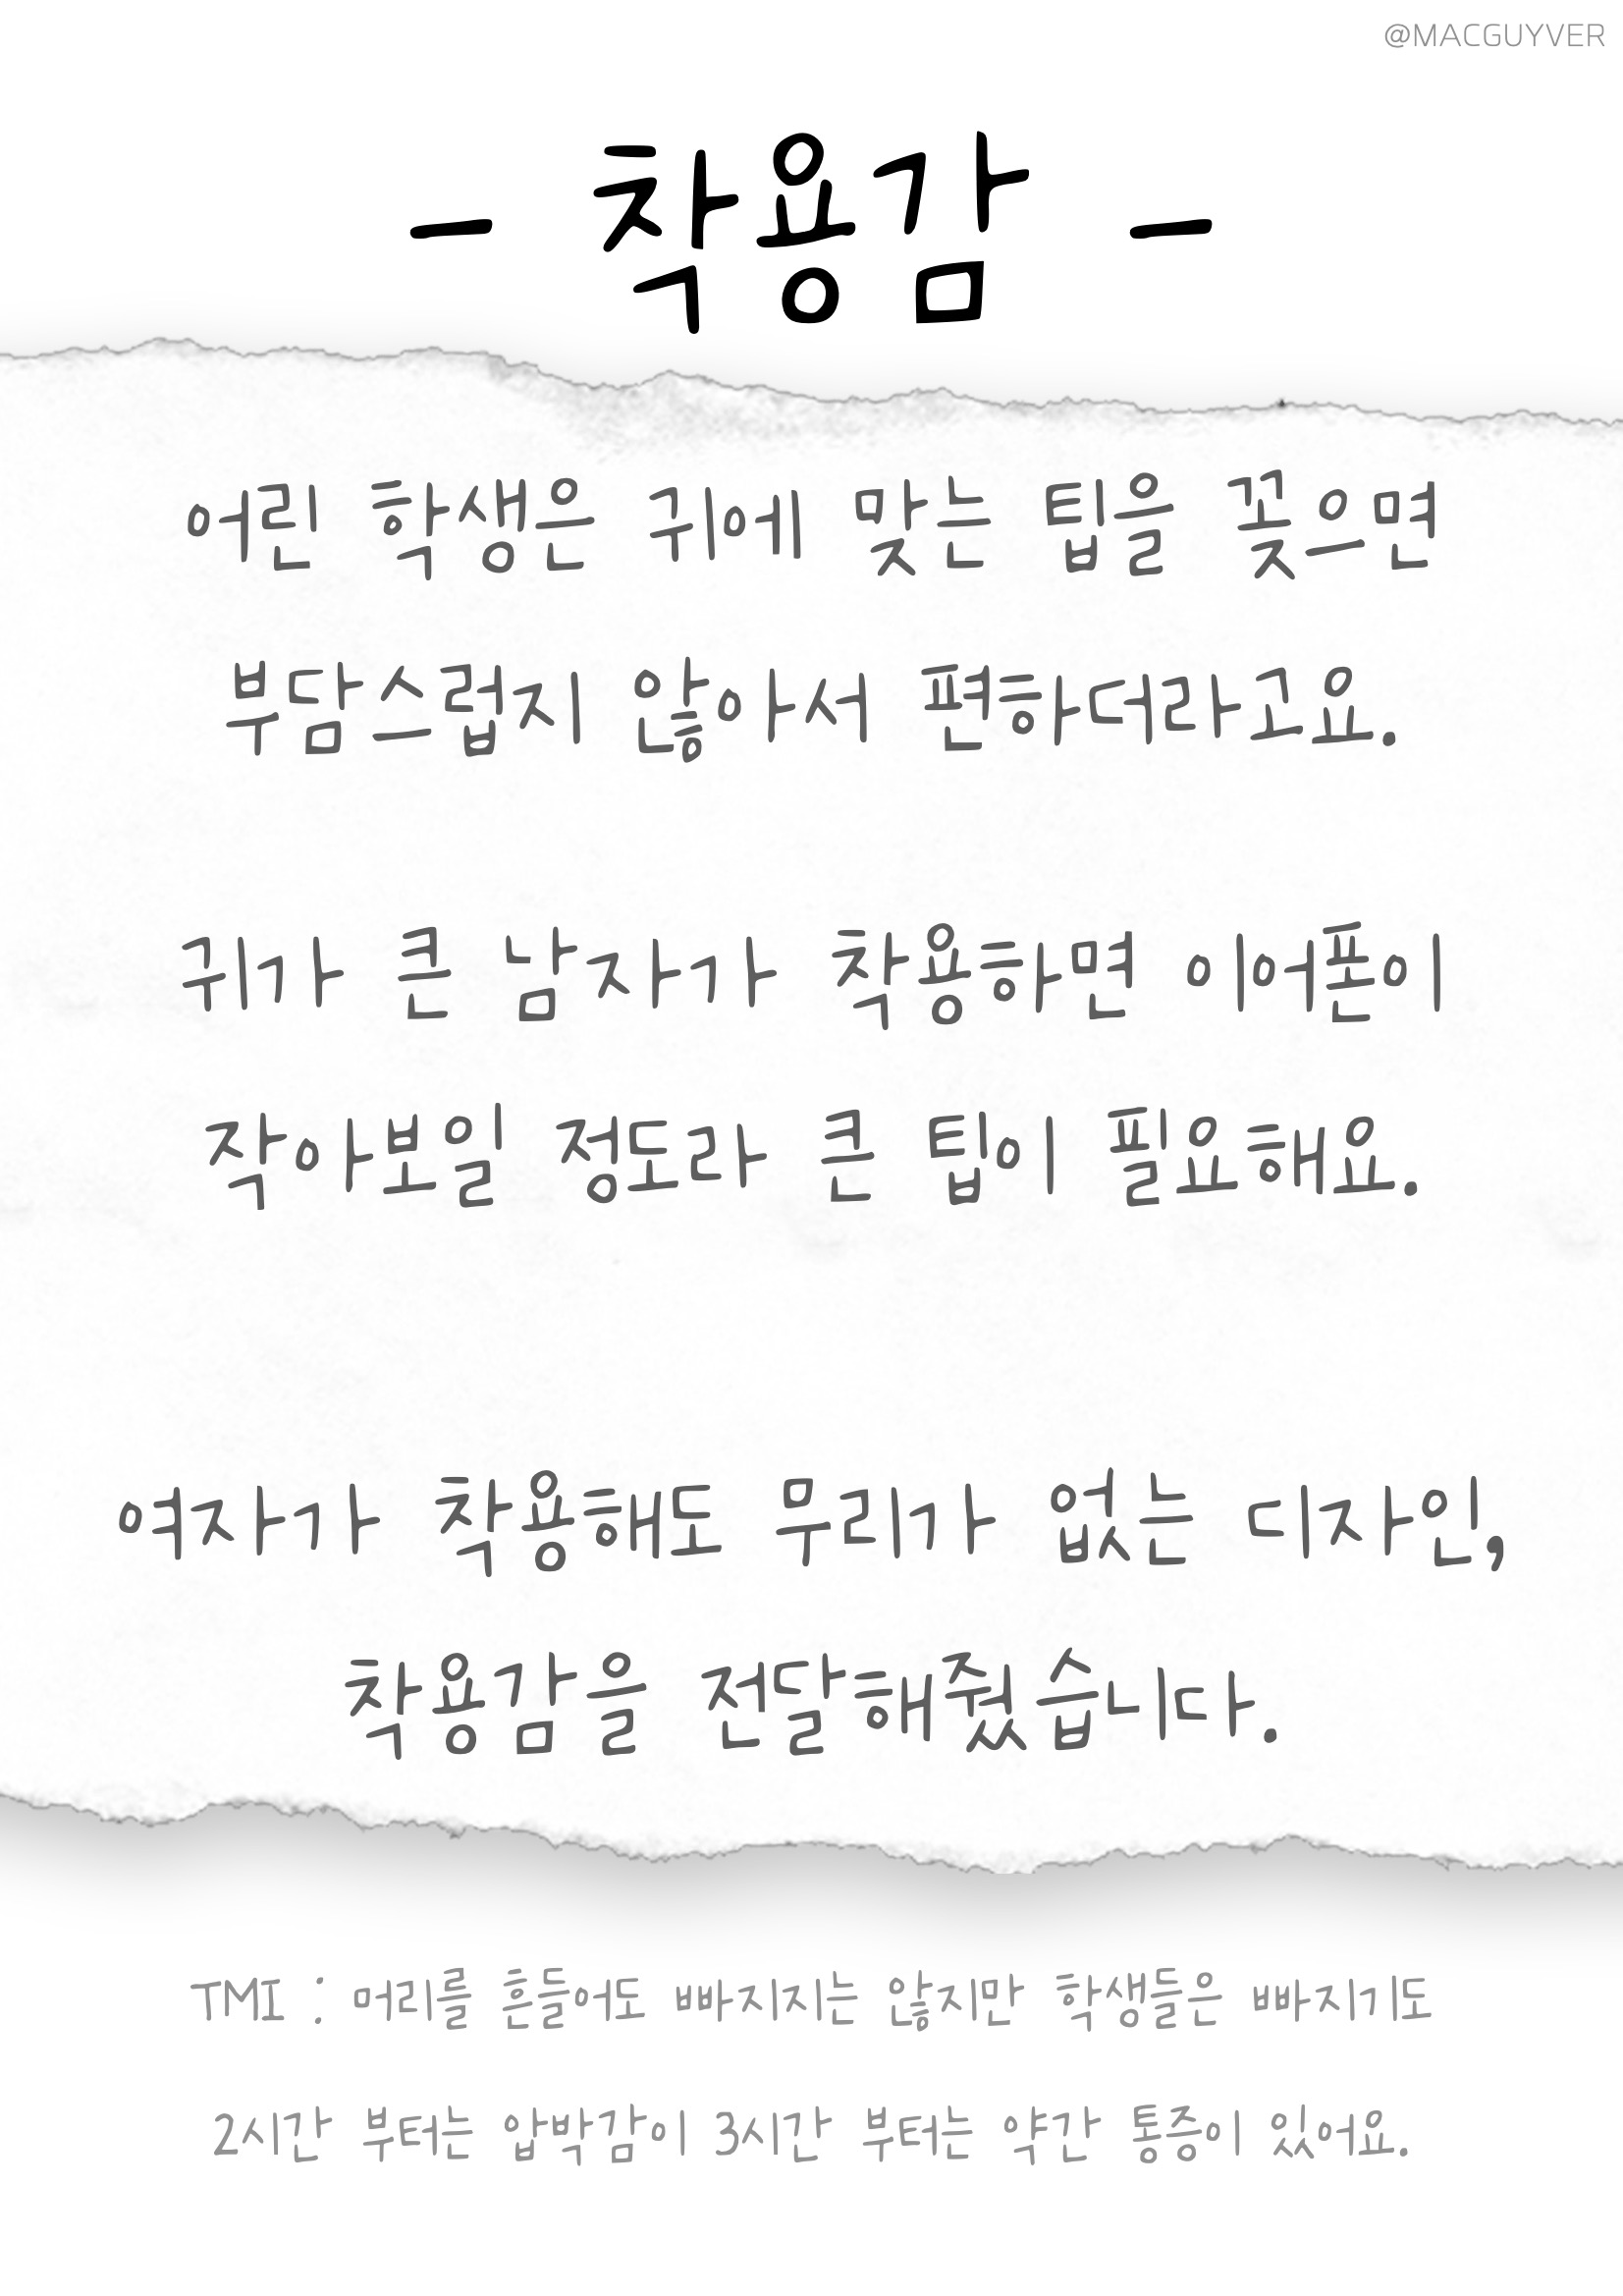 @MACGUYVER
- 착용감 -
어린 학생은 귀에 맞는 팁을 꽂으면
부담스럽지 않아서 편하더라고요.
귀가 큰 남자가 착용하면 이어폰이
작아보일 정도라 큰 팁이 필요해요.
여자가 착용해도 무리가 없는 디자인,
착용감을 전달해줬습니다.
TMI : 머리를 흔들어도 빠지지는 않지만 학생들은 빠지기도
2시간 부터는 압박감이 3시간 부터는 약간 통증이 있어요.